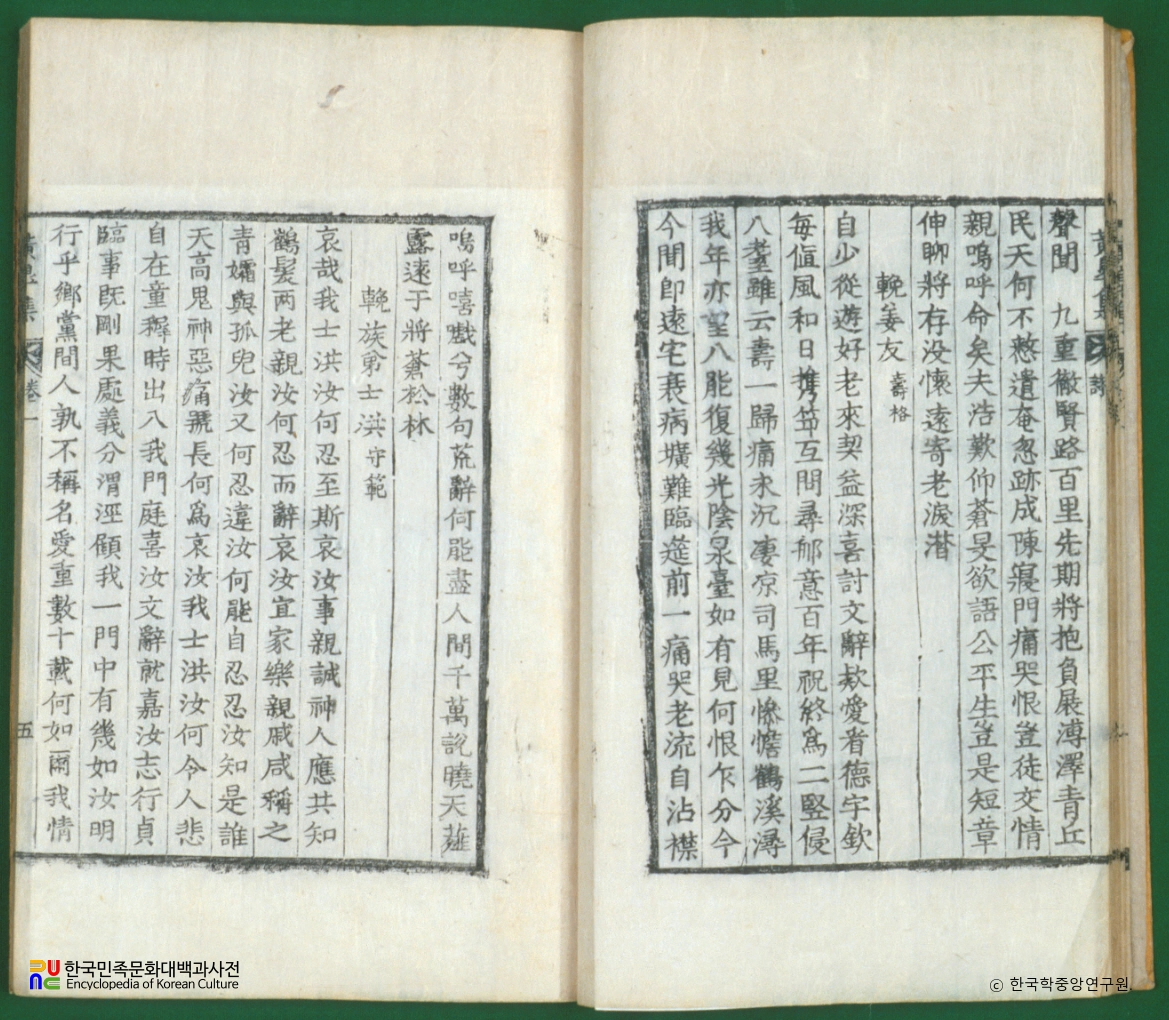 聲聞　九重徹賢路百里先期將抱負展溥澤青丘
民天何不憗遺奄忽跡成陳寢門痛哭恨豈徒交情
親嗚呼命矣夫浩歎仰蒼旻欲語公平生豈是短章
伸聊將存没懷遠寄老淚潸
輓姜友 壽格
自少從遊好老來契益深喜討文辭欸愛看德宇欽
每値風和日携笻互問尋郍意百年祝終爲二竪侵
八耋雖云壽一歸痛永沉凄凉司馬里慘憺鶴溪潯
我年亦望八能復幾光陰泉臺如有見何恨乍分今
今聞即遠宅衰病壙難臨筵前一痛哭老流自沾襟
嗚呼噫戱兮數句荒辭何能盡人間千萬說曉天薤
露遠于將蒼松林
輓族弟士洪 守範
哀哉我士洪汝何忍至斯哀汝事親誠神人應共知
鶴髮两老親汝何忍而辭哀汝宜家樂親戚咸稱之
青孀與孤兒汝又何忍違汝何能自忍忍汝知是誰
天高鬼神惡痛號長何爲哀汝我士洪汝何令人悲
自在童穉時出入我門庭喜汝文辭就嘉汝志行貞
臨事旣剛果處義分渭涇顧我一門中有幾如汝明
行乎鄉黨間人孰不稱名愛重數十載何如爾我情
卷一
五
한국민족문화대백과사전
Encyclopedia of Korean Culture
ⓒ 한국학중앙연구원